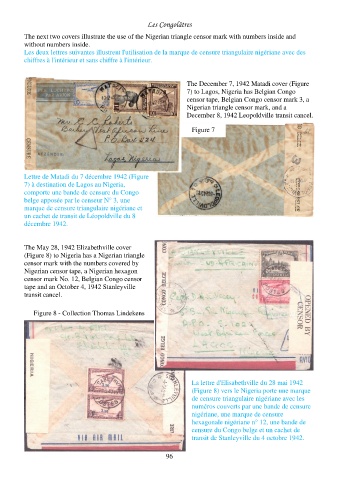 Les Congolâtres
The next two covers illustrate the use of the Nigerian triangle censor mark with numbers inside and
without numbers inside.
Les deux lettres suivantes illustrent l'utilisation de la marque de censure triangulaire nigériane avec des
chiffres à l'intérieur et sans chiffre à l'intérieur.
The December 7, 1942 Matadi cover (Figure
7) to Lagos, Nigeria has Belgian Congo
censor tape, Belgian Congo censor mark 3, a
Nigerian triangle censor mark, and a
December 8, 1942 Leopoldville transit cancel.
Figure 7
Lagos Nigeria
Lettre de Matadi du 7 décembre 1942 (Figure
7) à destination de Lagos au Nigeria,
comporte une bande de censure du Congo
belge apposée par le censeur N° 3, une
marque de censure triangulaire nigériane et
un cachet de transit de Léopoldville du 8
décembre 1942.
The May 28, 1942 Elizabethville cover
(Figure 8) to Nigeria has a Nigerian triangle
censor mark with the numbers covered by
Nigerian censor tape, a Nigerian hexagon
censor mark No. 12, Belgian Congo censor
tape and an October 4, 1942 Stanleyville
transit cancel.
OPENED BY
CENSOR
Figure 8 - Collection Thomas Lindekens
NIGERIA
VIA AIR MAIL
La lettre d'Elisabethville du 28 mai 1942
(Figure 8) vers le Nigeria porte une marque
de censure triangulaire nigériane avec les
numéros couverts par une bande de censure
nigériane, une marque de censure
hexagonale nigériane n° 12, une bande de
censure du Congo belge et un cachet de
transit de Stanleyville du 4 octobre 1942.
96